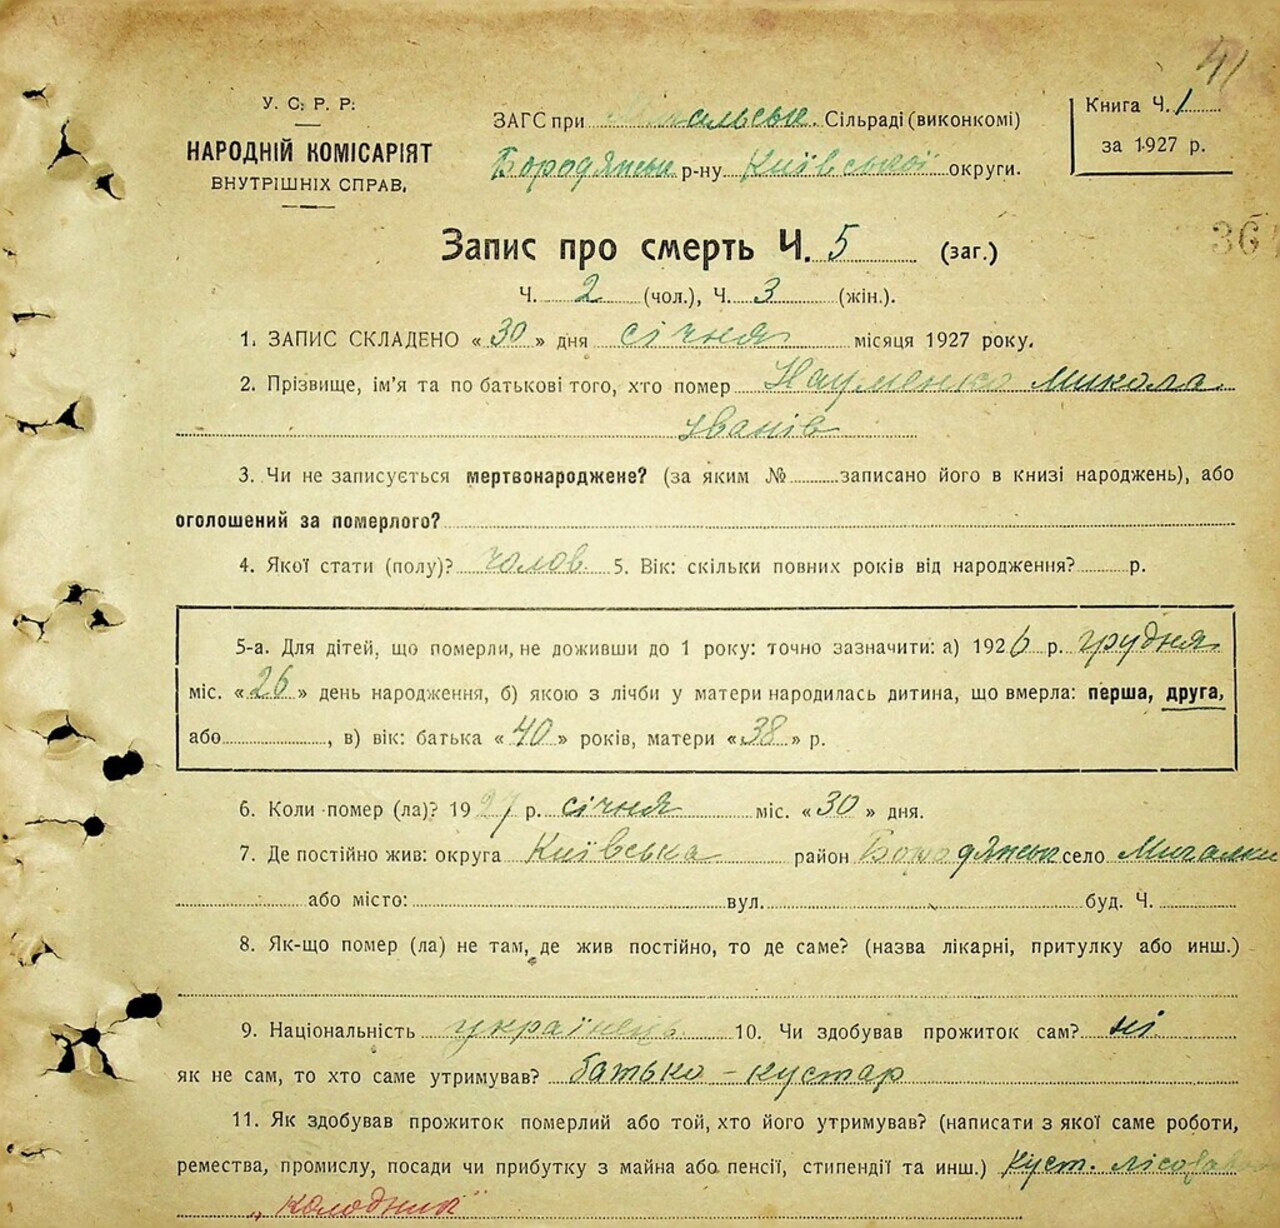 41
У. С. Р. Р.
НАРОДНІЙ КОМІСАРІЯТ
ВНУТРІШНІХ СПРАВ,
ЗАГС при Сільраді (виконкомі)
Бородянськ р-ну Київської округи.
Книга Ч. 1
за 1927 р.
36
Запис про смерть Ч. 5 (заг.)
Ч. 2 (чол.), Ч. 3 (жін.).
1. ЗАПИС СКЛАДЕНО « 30 » дня січня місяця 1927 року.
2. Прізвище, ім'я та по батькові того, хто помер Науменко Микола
Іванів
3. Чи не записується мертвонароджене? (за яким № записано його в книзі народжень), або
оголошений за померлого?
4. Якої стати (полу)? чолов. 5. Вік: скільки повних років від народження? р.
5-а. Для дітей, що померли, не доживши до 1 року: точно зазначити: а) 1926 р. грудня
міс. « 26 » день народження, б) якою з лічби у матери народилась дитина, що вмерла: перша, друга,
або , в) вік: батька « 40 » років, матери « 38 » р.
6. Коли помер (ла)? 1927 р. січня міс. « 30 » дня.
7. Де постійно жив: округа Київська район Бородянськ село
або місто: вул. буд. Ч.
8. Як-що помер (ла) не там, де жив постійно, то де саме? (назва лікарні, притулку або инш.)
9. Національність українець 10. Чи здобував прожиток сам? ні
як не сам, то хто саме утримував? батько - кустар
11. Як здобував прожиток померлий або той, хто його утримував? (написати з якої саме роботи,
ремества, промислу, посади чи прибутку з майна або пенсії, стипендії та инш.) куст.